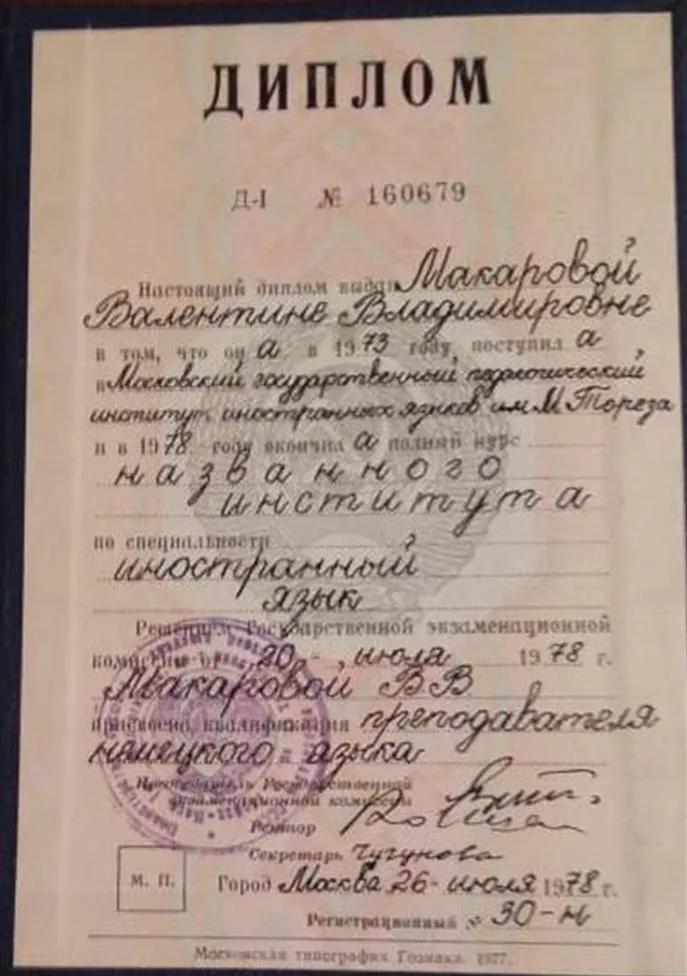 ДИПЛОМ
Д-I № 160679
Настоящий диплом выдан Макаровой
Валентине Владимировне
в том, что он а в 1973 году, поступил а
в Московский государственный педагогический
институт иностранных языков им М. Тореза
и в 1978 году окончил а полный курс
названного
института
по специальности
иностранный
язык
Решением Государственной экзаменационной
комиссии от 20 - июля 1978 г.
Макаровой В В
присвоена квалификация преподавателя
немецкого языка
Председатель Государственной
экзаменационной комиссии
Ректор
Секретарь Чугунова
М. П.
Город Москва 26 - июля 1978 г.
Регистрационный № 30-н
Московская типография Гознака. 1977.